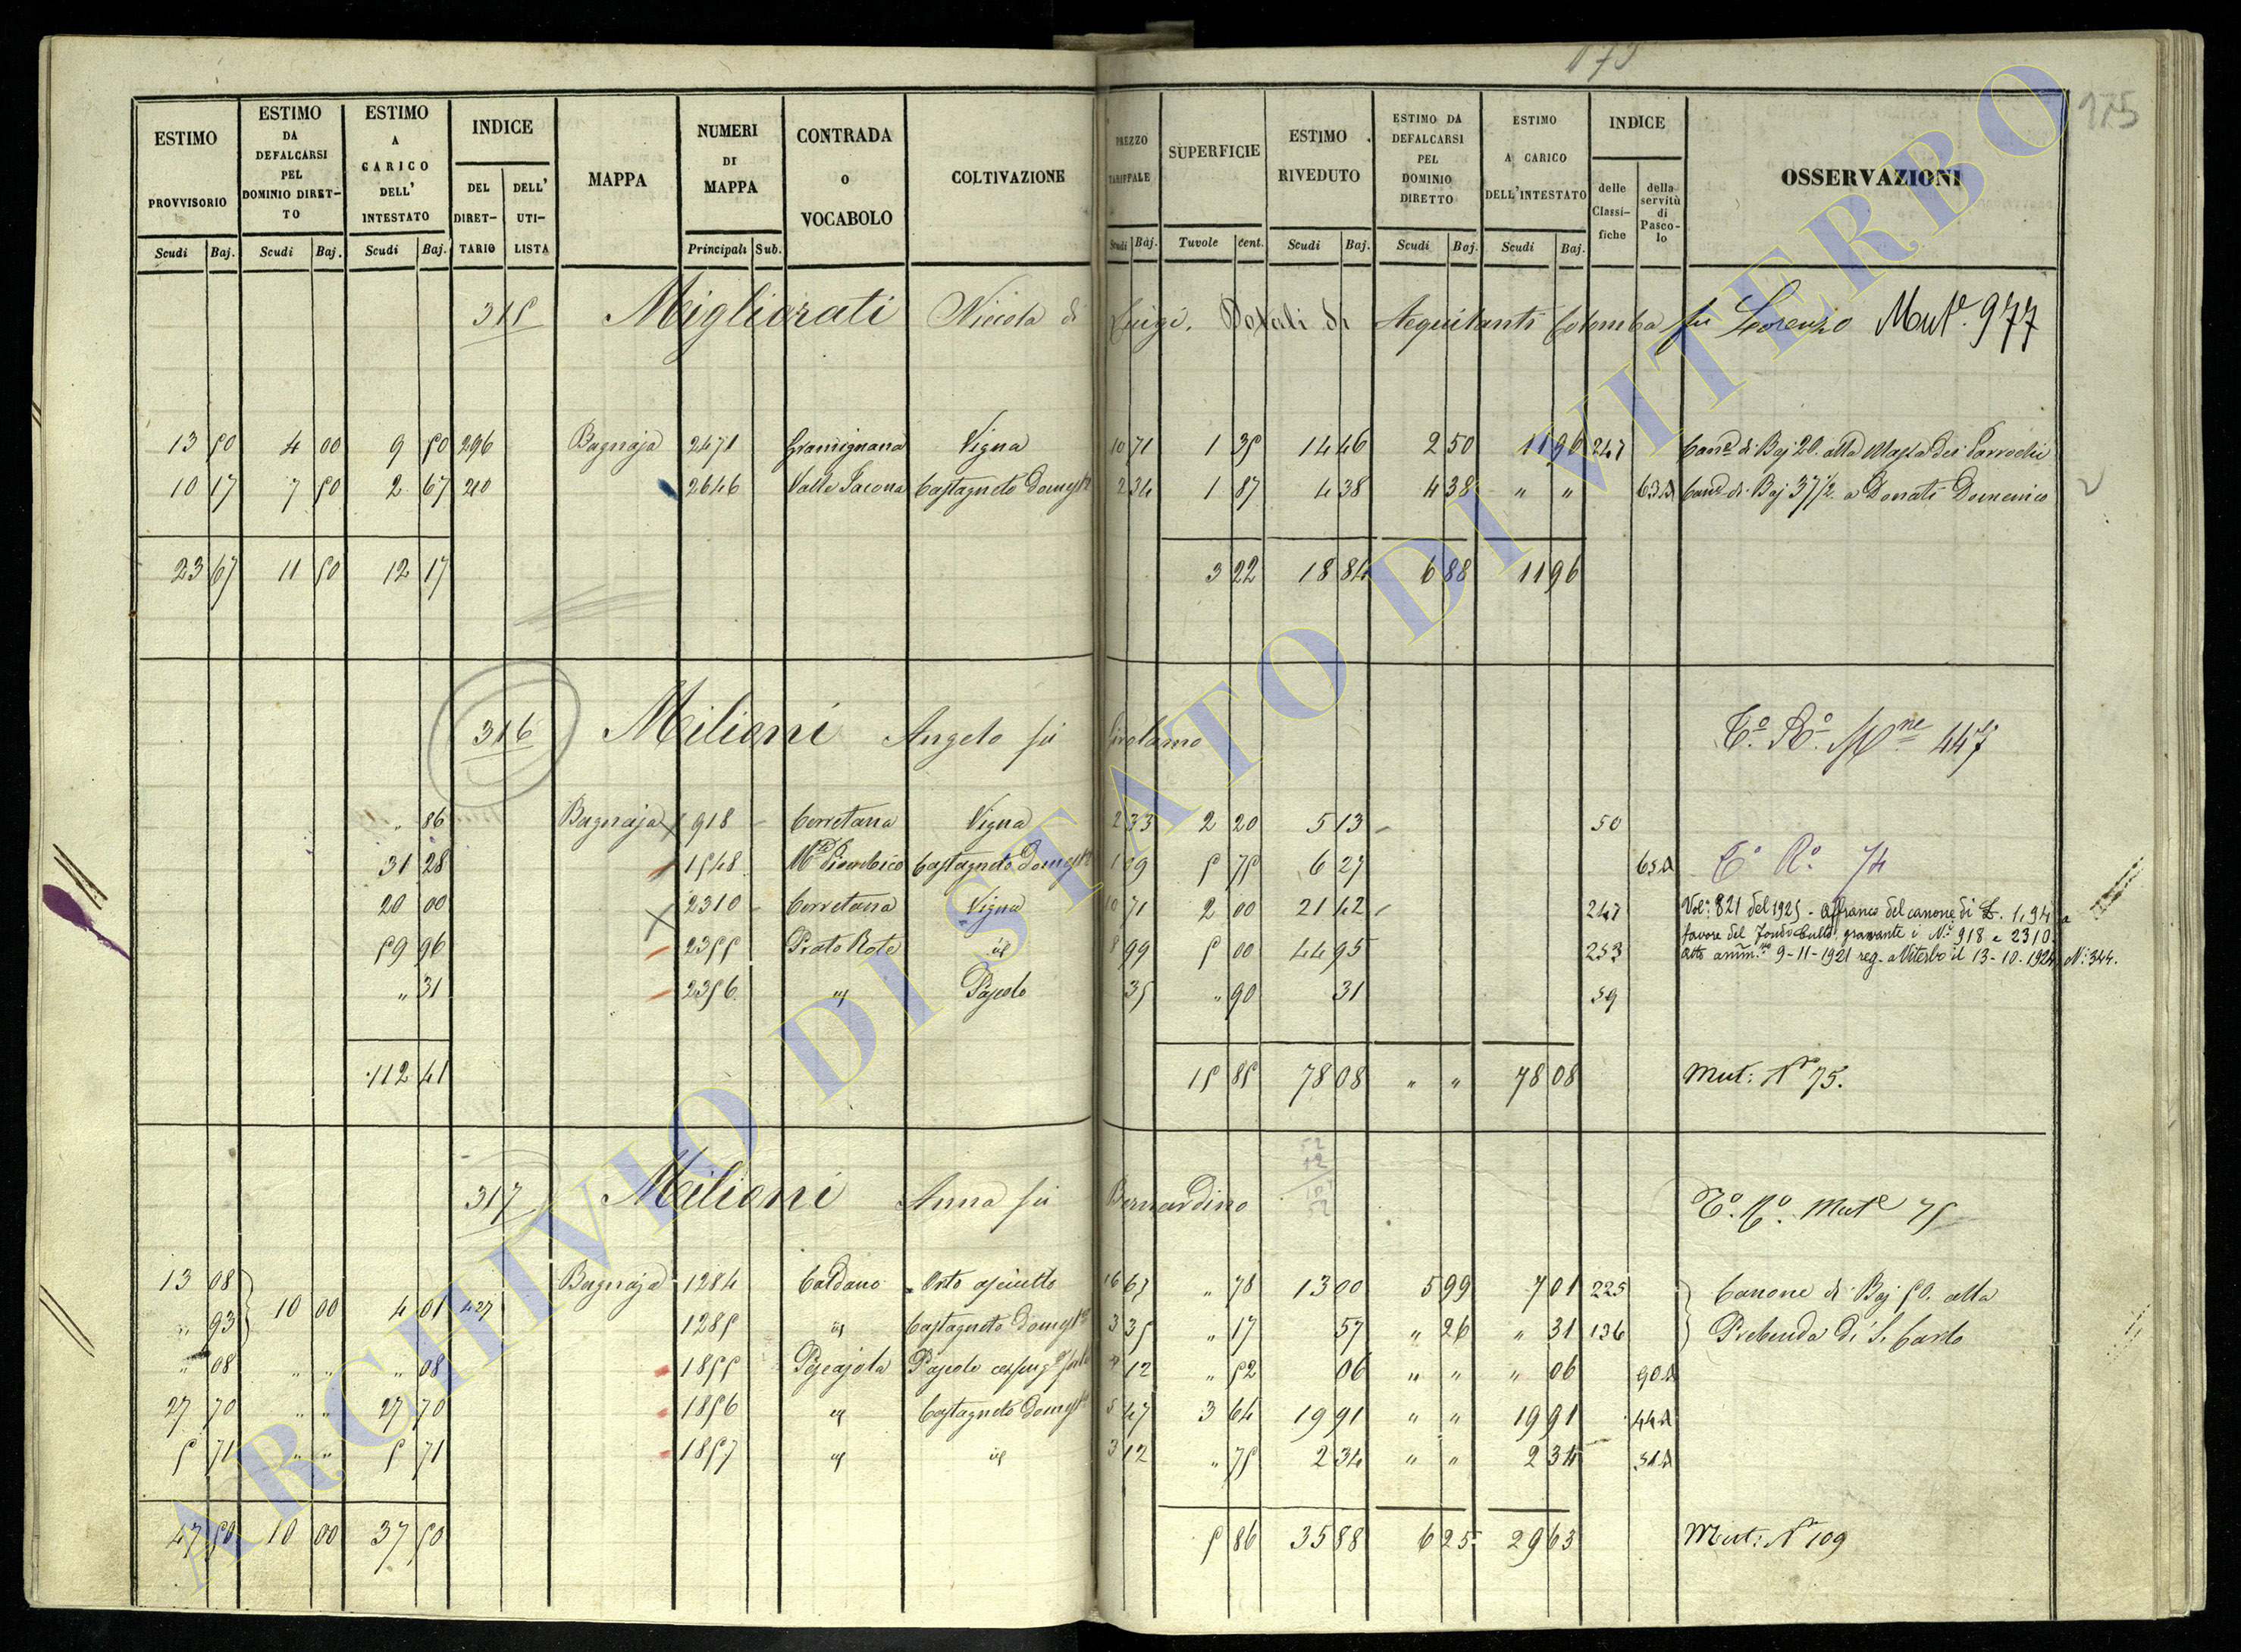 175
175
ESTIMO PROVVISORIO | ESTIMO DA DEFALCARSI PEL DOMINIO DIRETTO | ESTIMO A CARICO DELL' INTESTATO | INDICE DEL DIRETTARIO | DELL' UTILISTA | MAPPA | NUMERI DI MAPPA | CONTRADA O VOCABOLO | COLTIVAZIONE | PREZZO TARIFFALE | SUPERFICIE | ESTIMO RIVEDUTO | ESTIMO DA DEFALCARSI PEL DOMINIO DIRETTO | ESTIMO A CARICO DELL'INTESTATO | INDICE delle Classifiche | della servitù di Pascolo | OSSERVAZIONI
Scudi | Baj. | Scudi | Baj. | Scudi | Baj. | Principali | Sub. | Scudi | Baj. | Tavole | Cent. | Scudi | Baj. | Scudi | Baj. | Scudi | Baj.
315 Migliorati Niccola di Luigi. Dotali di Aequitanti Colomba fu Lorenzo Mut.e 977
13 50 4 00 9 50 296 Bagnaja 2471 Gramignana Vigna 10 71 1 35 14 46 2 50 11 96 247 Can.e di Baj 20. alla Massa dei Parrochi
10 17 7 50 2 67 210 2646 Valle Jacona Castagneto Domest.o 2 34 1 87 4 38 4 38 " " 63 A Can.e di Baj 37 1/2 a Donati Domenico
23 67 11 50 12 17 3 22 18 84 6 88 11 96
316 Milioni Angelo fù Girolamo T.o R.o M.ne 447
" 86 Bagnaja 918 Cerretana Vigna 2 33 2 20 5 13 50
31 28 1548 M.te Piombico Castagneto Domest.o 1 09 5 75 6 27 63 A T.o R.o 74
20 00 2310 Cerretana Vigna 10 71 2 00 21 42 247 Vol. 821 del 1925 - Affranco del canone di £. 1,94 a
favore del Fondo Culto, gravante i N.i 918 e 2310.
59 96 2355 Prato Rote id 8 99 5 00 44 95 253 Atto amm.vo 9-11-1921 reg. a Viterbo il 13-10-1924 N. 344.
" 31 2356 id Pascolo 35 " 90 31 59
112 41 15 85 78 08 " " 78 08 Mut: N.o 75.
317 Milioni Anna fù Bernardino T.o R.o Mut.e 75
13 08 10 00 4 01 427 Bagnaja 1284 Caldano Orto asciutto 16 67 " 78 13 00 5 99 7 01 225 Canone di Baj 50. alla
" 93 1285 id Castagneto domest.o 3 35 " 17 57 " 26 " 31 136 Prebenda di S. Carlo
" 08 " " " 08 1855 Pescajola Pascolo 12 " 52 06 " " " 06 90 A
27 70 " " 27 70 1856 id Castagneto Domest.o 5 47 3 64 19 91 " " 19 91 44 A
5 71 " " 5 71 1857 id id 3 12 " 75 2 34 " " 2 34 51 A
47 50 10 00 37 50 5 86 35 88 6 25 29 63 Mut: N.o 109
ARCHIVIO DI STATO DI VITERBO